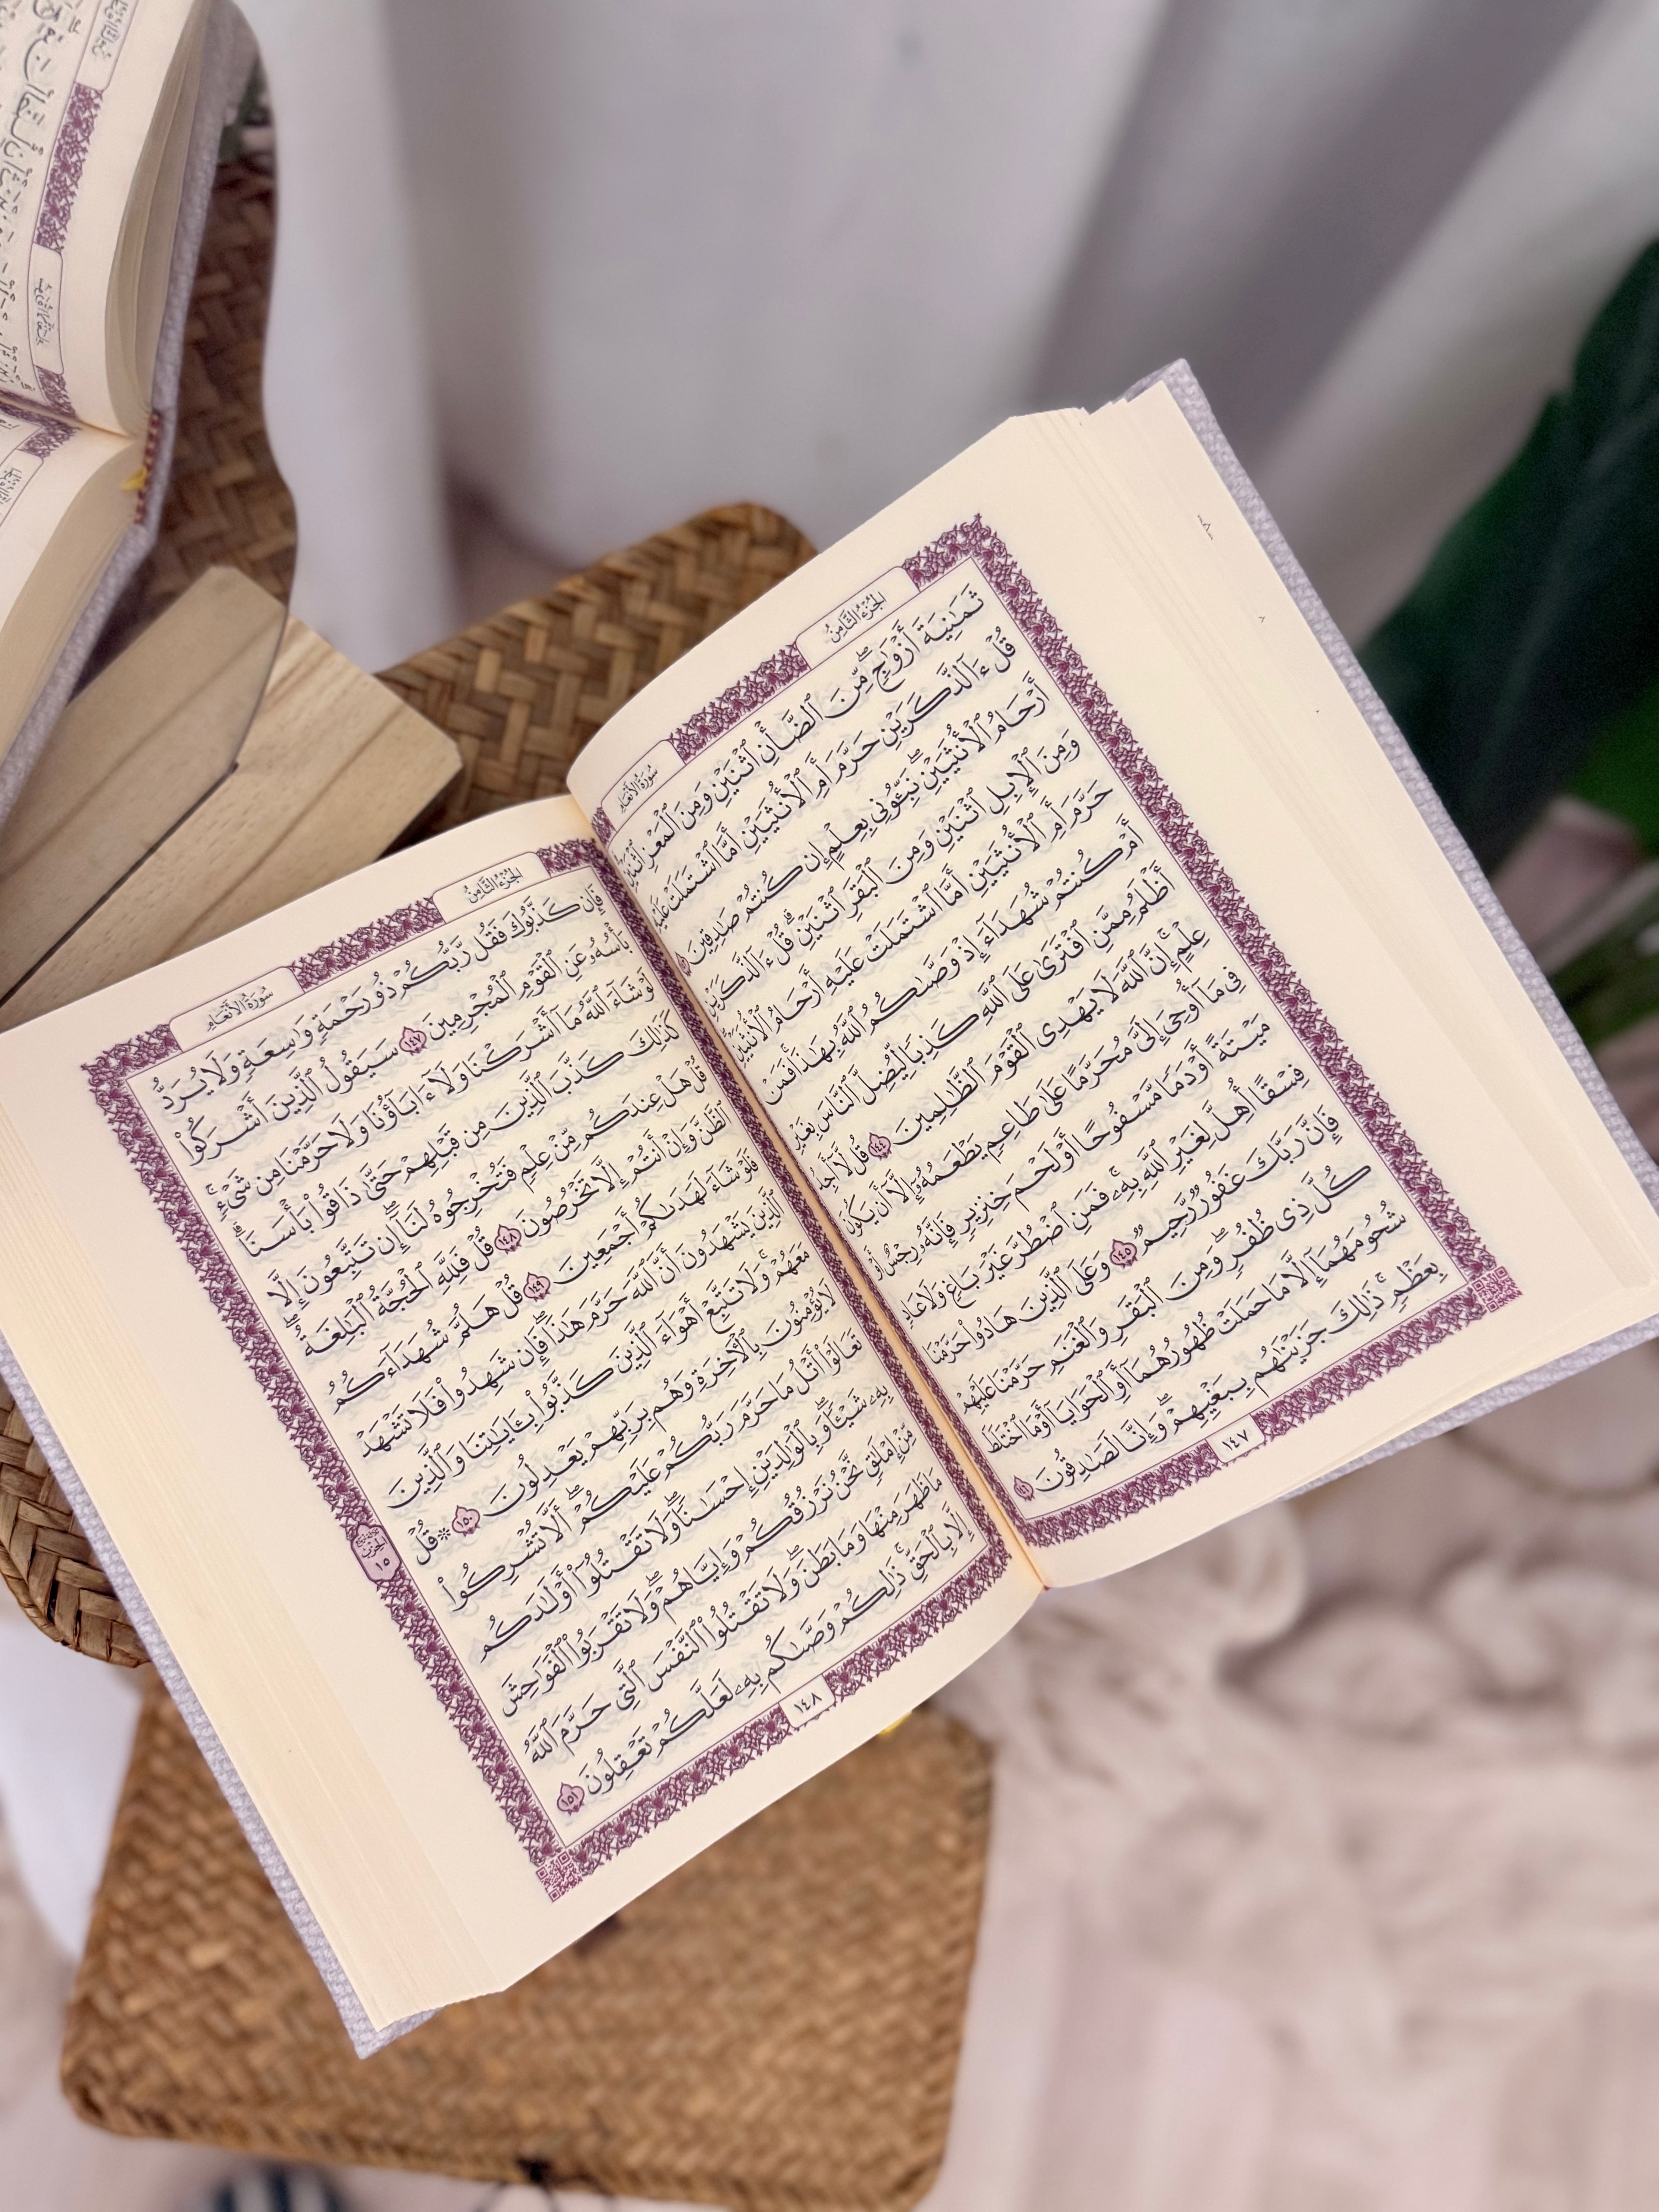 الجزء الثامن
سورة الأنعام
ثَمَٰنِيَةَ أَزْوَٰجٍۖ مِّنَ ٱلضَّأْنِ ٱثْنَيْنِ وَمِنَ ٱلْمَعْزِ ٱثْنَيْنِۗ
قُلْ ءَآلذَّكَرَيْنِ حَرَّمَ أَمِ ٱلْأُنثَيَيْنِ أَمَّا ٱشْتَمَلَتْ عَلَيْهِ
أَرْحَامُ ٱلْأُنثَيَيْنِۖ نَبِّـُٔونِى بِعِلْمٍ إِن كُنتُمْ صَٰدِقِينَ
وَمِنَ ٱلْإِبِلِ ٱثْنَيْنِ وَمِنَ ٱلْبَقَرِ ٱثْنَيْنِۗ قُلْ ءَآلذَّكَرَيْنِ
حَرَّمَ أَمِ ٱلْأُنثَيَيْنِ أَمَّا ٱشْتَمَلَتْ عَلَيْهِ أَرْحَامُ ٱلْأُنثَيَيْنِۖ
أَمْ كُنتُمْ شُهَدَآءَ إِذْ وَصَّىٰكُمُ ٱللَّهُ بِهَٰذَاۚ فَمَنْ
أَظْلَمُ مِمَّنِ ٱفْتَرَىٰ عَلَى ٱللَّهِ كَذِبًا لِّيُضِلَّ ٱلنَّاسَ بِغَيْرِ
عِلْمٍۚ إِنَّ ٱللَّهَ لَا يَهْدِى ٱلْقَوْمَ ٱلظَّٰلِمِينَ ١٤٤ قُل لَّآ أَجِدُ
فِى مَآ أُوحِىَ إِلَىَّ مُحَرَّمًا عَلَىٰ طَاعِمٍ يَطْعَمُهُۥٓ إِلَّآ أَن يَكُونَ
مَيْتَةً أَوْ دَمًا مَّسْفُوحًا أَوْ لَحْمَ خِنزِيرٍ فَإِنَّهُۥ رِجْسٌ أَوْ
فِسْقًا أُهِلَّ لِغَيْرِ ٱللَّهِ بِهِۦۚ فَمَنِ ٱضْطُرَّ غَيْرَ بَاغٍ وَلَا عَادٍ
فَإِنَّ رَبَّكَ غَفُورٌ رَّحِيمٌ ١٤٥ وَعَلَى ٱلَّذِينَ هَادُوا۟ حَرَّمْنَا
كُلَّ ذِى ظُفُرٍۖ وَمِنَ ٱلْبَقَرِ وَٱلْغَنَمِ حَرَّمْنَا عَلَيْهِمْ
شُحُومَهُمَآ إِلَّا مَا حَمَلَتْ ظُهُورُهُمَآ أَوِ ٱلْحَوَايَآ أَوْ مَا ٱخْتَلَطَ
بِعَظْمٍۚ ذَٰلِكَ جَزَيْنَٰهُم بِبَغْيِهِمْۖ وَإِنَّا لَصَٰدِقُونَ ١٤٦
١٤٧
الجزء الثامن
سورة الأنعام
فَإِن كَذَّبُوكَ فَقُل رَّبُّكُمْ ذُو رَحْمَةٍ وَٰسِعَةٍ وَلَا يُرَدُّ
بَأْسُهُۥ عَنِ ٱلْقَوْمِ ٱلْمُجْرِمِينَ ١٤٧ سَيَقُولُ ٱلَّذِينَ أَشْرَكُوا۟
لَوْ شَآءَ ٱللَّهُ مَآ أَشْرَكْنَا وَلَآ ءَابَآؤُنَا وَلَا حَرَّمْنَا مِن شَىْءٍۚ
كَذَٰلِكَ كَذَّبَ ٱلَّذِينَ مِن قَبْلِهِمْ حَتَّىٰ ذَاقُوا۟ بَأْسَنَاۗ
قُلْ هَلْ عِندَكُم مِّنْ عِلْمٍ فَتُخْرِجُوهُ لَنَآۖ إِن تَتَّبِعُونَ إِلَّا
ٱلظَّنَّ وَإِنْ أَنتُمْ إِلَّا تَخْرُصُونَ ١٤٨ قُلْ فَلِلَّهِ ٱلْحُجَّةُ ٱلْبَٰلِغَةُۖ
فَلَوْ شَآءَ لَهَدَىٰكُمْ أَجْمَعِينَ ١٤٩ قُلْ هَلُمَّ شُهَدَآءَكُمُ
ٱلَّذِينَ يَشْهَدُونَ أَنَّ ٱللَّهَ حَرَّمَ هَٰذَاۖ فَإِن شَهِدُوا۟ فَلَا تَشْهَدْ
مَعَهُمْۚ وَلَا تَتَّبِعْ أَهْوَآءَ ٱلَّذِينَ كَذَّبُوا۟ بِـَٔايَٰتِنَا وَٱلَّذِينَ
لَا يُؤْمِنُونَ بِٱلْءَاخِرَةِ وَهُم بِرَبِّهِمْ يَعْدِلُونَ ١٥٠ ۞ قُلْ
تَعَالَوْا۟ أَتْلُ مَا حَرَّمَ رَبُّكُمْ عَلَيْكُمْۖ أَلَّا تُشْرِكُوا۟
بِهِۦ شَيْـًٔاۖ وَبِٱلْوَٰلِدَيْنِ إِحْسَٰنًاۖ وَلَا تَقْتُلُوٓا۟ أَوْلَٰدَكُم
مِّنْ إِمْلَٰقٍۖ نَّحْنُ نَرْزُقُكُمْ وَإِيَّاهُمْۖ وَلَا تَقْرَبُوا۟ ٱلْفَوَٰحِشَ
مَا ظَهَرَ مِنْهَا وَمَا بَطَنَۖ وَلَا تَقْتُلُوا۟ ٱلنَّفْسَ ٱلَّتِى حَرَّمَ ٱللَّهُ
إِلَّا بِٱلْحَقِّۚ ذَٰلِكُمْ وَصَّىٰكُم بِهِۦ لَعَلَّكُمْ تَعْقِلُونَ ١٥١
الحزب
١٥
١٤٨